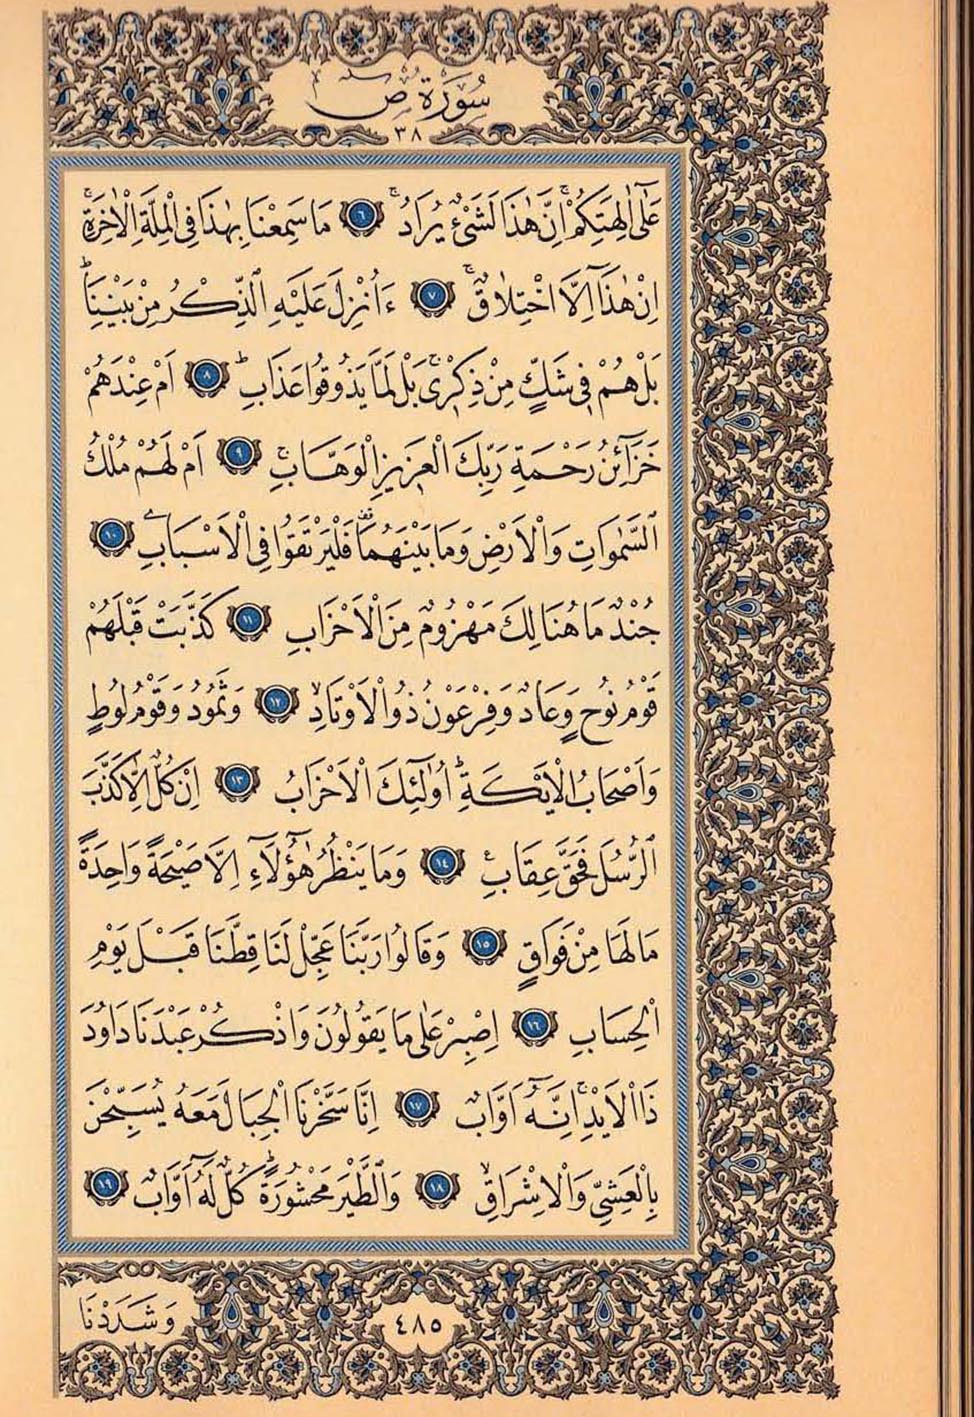 سُورَةُ صٓ
٣٨
عَلٰٓى اٰلِهَتِكُمْۚ اِنَّ هٰذَا لَشَىْءٌ يُرَادُۚ ٦ مَا سَمِعْنَا بِهٰذَا فِى الْمِلَّةِ الْاٰخِرَةِۚ
اِنْ هٰذَٓا اِلَّا اخْتِلَاقٌۚ ٧ ءَاُنْزِلَ عَلَيْهِ الذِّكْرُ مِنْ بَيْنِنَاۜ
بَلْ هُمْ فِى شَكٍّ مِنْ ذِكْرِىۚ بَلْ لَمَّا يَذُوقُوا عَذَابِۜ ٨ اَمْ عِنْدَهُمْ
خَزَٓائِنُ رَحْمَةِ رَبِّكَ الْعَزِيزِ الْوَهَّابِۚ ٩ اَمْ لَهُمْ مُلْكُ
السَّمٰوَاتِ وَالْاَرْضِ وَمَا بَيْنَهُمَا۠ فَلْيَرْتَقُوا فِى الْاَسْبَابِ ١٠
جُنْدٌ مَا هُنَالِكَ مَهْزُومٌ مِنَ الْاَحْزَابِ ١١ كَذَّبَتْ قَبْلَهُمْ
قَوْمُ نُوحٍ وَعَادٌ وَفِرْعَوْنُ ذُو الْاَوْتَادِۙ ١٢ وَثَمُودُ وَقَوْمُ لُوطٍ
وَاَصْحَابُ الْاَيْكَةِۜ اُو۬لٰٓئِكَ الْاَحْزَابُ ١٣ اِنْ كُلٌّ اِلَّا كَذَّبَ
الرُّسُلَ فَحَقَّ عِقَابِ ١٤ وَمَا يَنْظُرُ هٰٓؤُ۬لَٓاءِ اِلَّا صَيْحَةً وَاحِدَةً
مَا لَهَا مِنْ فَوَاقٍ ١٥ وَقَالُوا رَبَّنَا عَجِّلْ لَنَا قِطَّنَا قَبْلَ يَوْمِ
الْحِسَابِ ١٦ اِصْبِرْ عَلٰى مَا يَقُولُونَ وَاذْكُرْ عَبْدَنَا دَاوُدَ
ذَا الْاَيْدِۚ اِنَّهُٓ اَوَّابٌ ١٧ اِنَّا سَخَّرْنَا الْجِبَالَ مَعَهُ يُسَبِّحْنَ
بِالْعَشِىِّ وَالْاِشْرَاقِۙ ١٨ وَالطَّيْرَ مَحْشُورَةًۜ كُلٌّ لَهُٓ اَوَّابٌ ١٩
٤٨٥
وَشَدَدْنَا